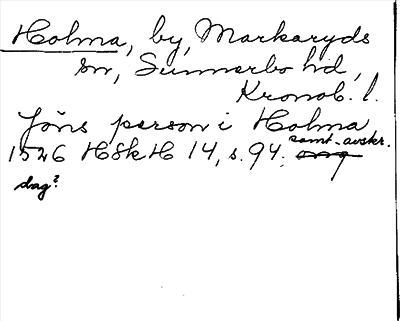 Holma, by, Markaryds
sn, Sunnerbo hd,
Kronob. l.
Jöns person i Holma
samt. avskr.
1526 HSkH 14, s. 94.
dag?